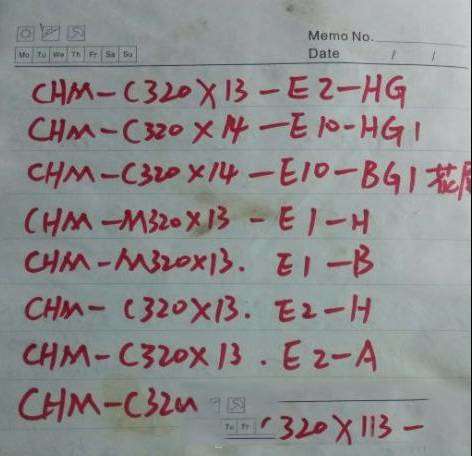 Memo No.
Mo Tu We Th Fr Sa Su
Date / /
CHM-C320X13-E2-HG
CHM-C320X14-E10-HG1
CHM-C320X14-E10-BG1 花
CHM-M320X13-E1-H
CHM-M320X13. E1-B
CHM-C320X13. E2-H
CHM-C320X13. E2-A
CHM-C32
Tu Fr
320X113-